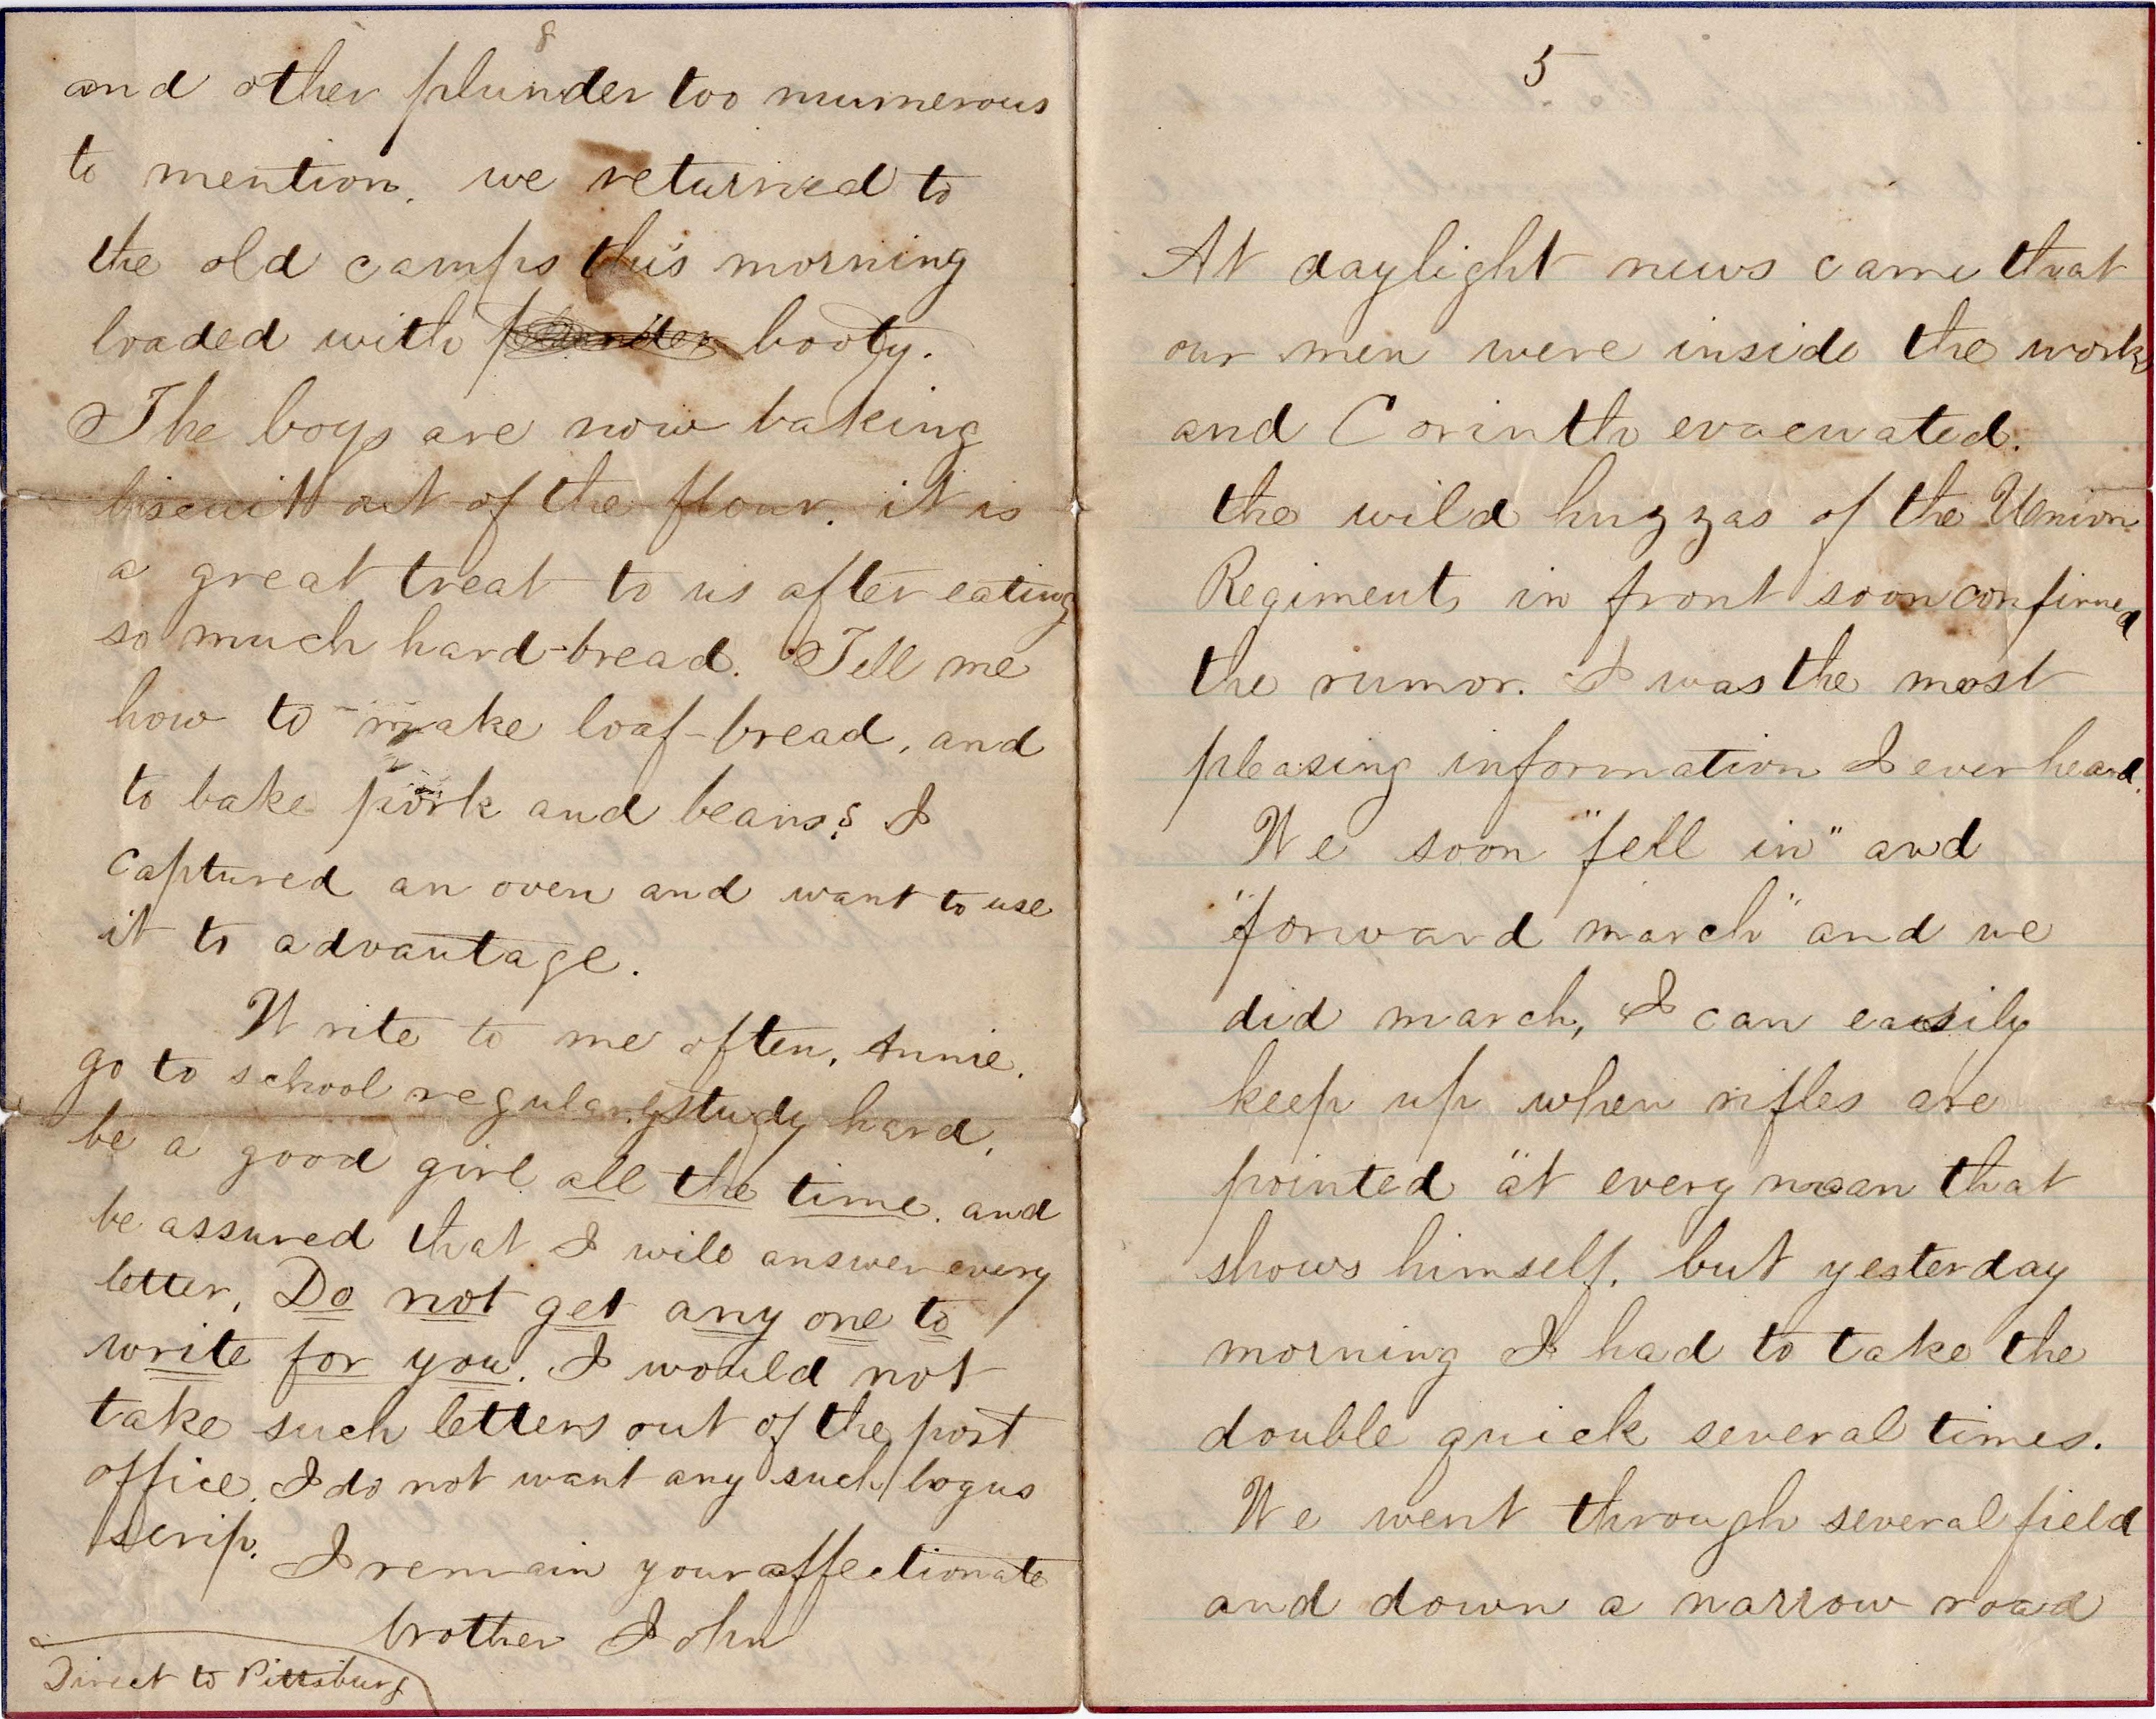 8
and other plunder too numerous
to mention. we returned to
the old camps this morning
loaded with plunder booty.
The boys are now baking
biscuit out of the flour. it is
a great treat to us after eating
so much hard-bread. Tell me
how to make loaf-bread, and
to bake pork and beans? I
captured an oven and want to use
it to advantage.
Write to me often, Annie.
go to school regularly study hard,
be a good girl all the time. and
be assured that I will answer every
letter, Do not get any one to
write for you. I would not
take such letters out of the post
office. I do not want any such bogus
scrip.
I remain your affectionate
brother John
Direct to Pittsburg
5
At daylight news came that
our men were inside the works
and Corinth evacuated.
the wild huzzas of the Union
Regiments in front soon confirmed
the rumor. I was the most
pleasing information I ever heard.
We soon "fell in" and
"forward march" and we
did march, I can easily
keep up when rifles are
pointed at every man that
shows himself. but yesterday
morning I had to take the
double quick several times.
We went through several field
and down a narrow road